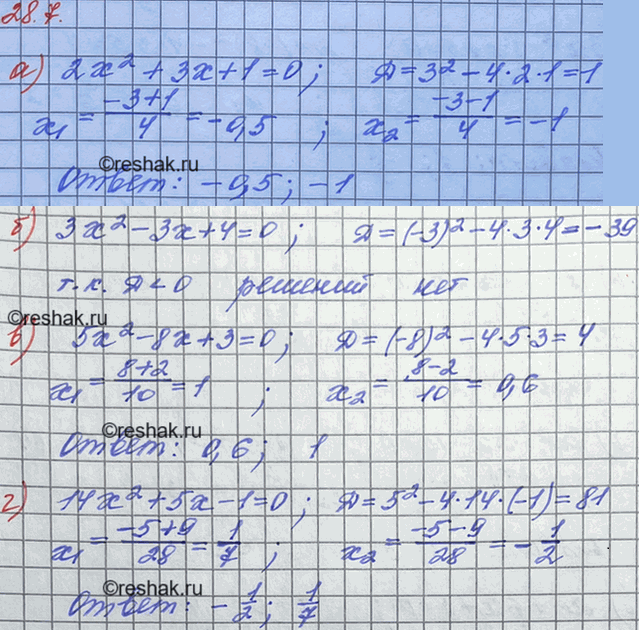 28.7.
а) 2x² + 3x + 1 = 0; Д = 3² - 4·2·1 = 1
x₁ = (-3+1)/4 = -0,5; x₂ = (-3-1)/4 = -1
©reshak.ru
Ответ: -0,5; -1
б) 3x² - 3x + 4 = 0; Д = (-3)² - 4·3·4 = -39
т.к. Д < 0 решений нет
©reshak.ru
в) 5x² - 8x + 3 = 0; Д = (-8)² - 4·5·3 = 4
x₁ = (8+2)/10 = 1; x₂ = (8-2)/10 = 0,6
©reshak.ru
Ответ: 0,6; 1
г) 14x² + 5x - 1 = 0; Д = 5² - 4·14·(-1) = 81
x₁ = (-5+9)/28 = 1/7; x₂ = (-5-9)/28 = -1/2
©reshak.ru
Ответ: -1/2; 1/7